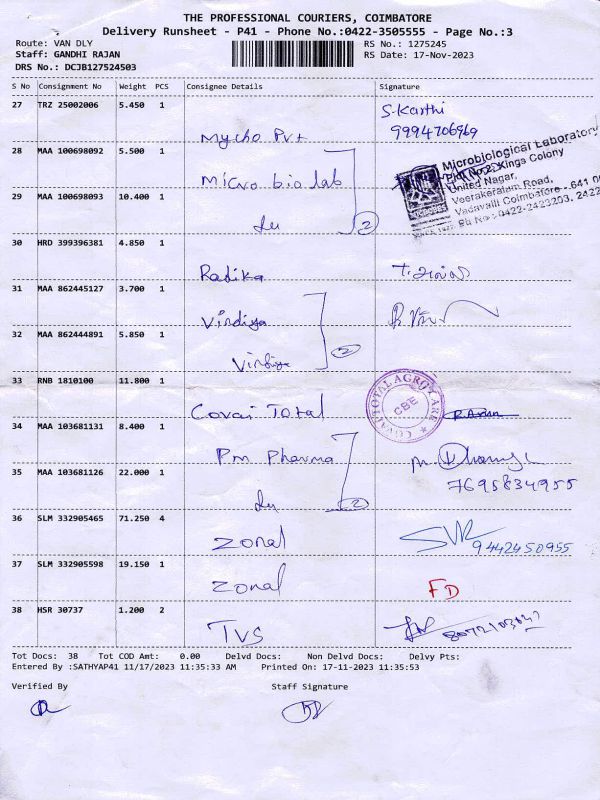 THE PROFESSIONAL COURIERS, COIMBATORE
Delivery Runsheet - P41 - Phone No.:0422-3505555 - Page No.:3
Route: VAN DLY
RS No.: 1275245
Staff: GANDHI RAJAN
RS Date: 17-Nov-2023
DRS No.: DCJB127524503
S No Consignment No Weight PCS Consignee Details Signature
27 TRZ 25002006 5.450 1
S. Karthi
9994706969
Mycho Pvt
28 MAA 100698092 5.500 1
Micro bio lab
Microbiological Laboratory
Kings Colony
United Nagar,
Veerakeralam Road,
Vadavalli Coimbatore - 641 0
Ph No.: 0422-2423203, 2422
29 MAA 100698093 10.400 1
2
30 HRD 399396381 4.850 1
Radika
31 MAA 862445127 3.700 1
Virdiya
32 MAA 862444891 5.850 1
Virdiya 2
33 RNB 1810100 11.800 1
Covai Total
COVAI TOTAL AGRO CARE
CBE
34 MAA 103681131 8.400 1
Pm Pharma
35 MAA 103681126 22.000 1
7695834955
2
36 SLM 332905465 71.250 4
Zonal
SVR
9442450955
37 SLM 332905598 19.150 1
Zonal FD
38 HSR 30737 1.200 2
TVS
Tot Docs: 38 Tot COD Amt: 0.00 Delvd Docs: Non Delvd Docs: Delvy Pts:
Entered By :SATHYAP41 11/17/2023 11:35:33 AM Printed On: 17-11-2023 11:35:53
Verified By Staff Signature